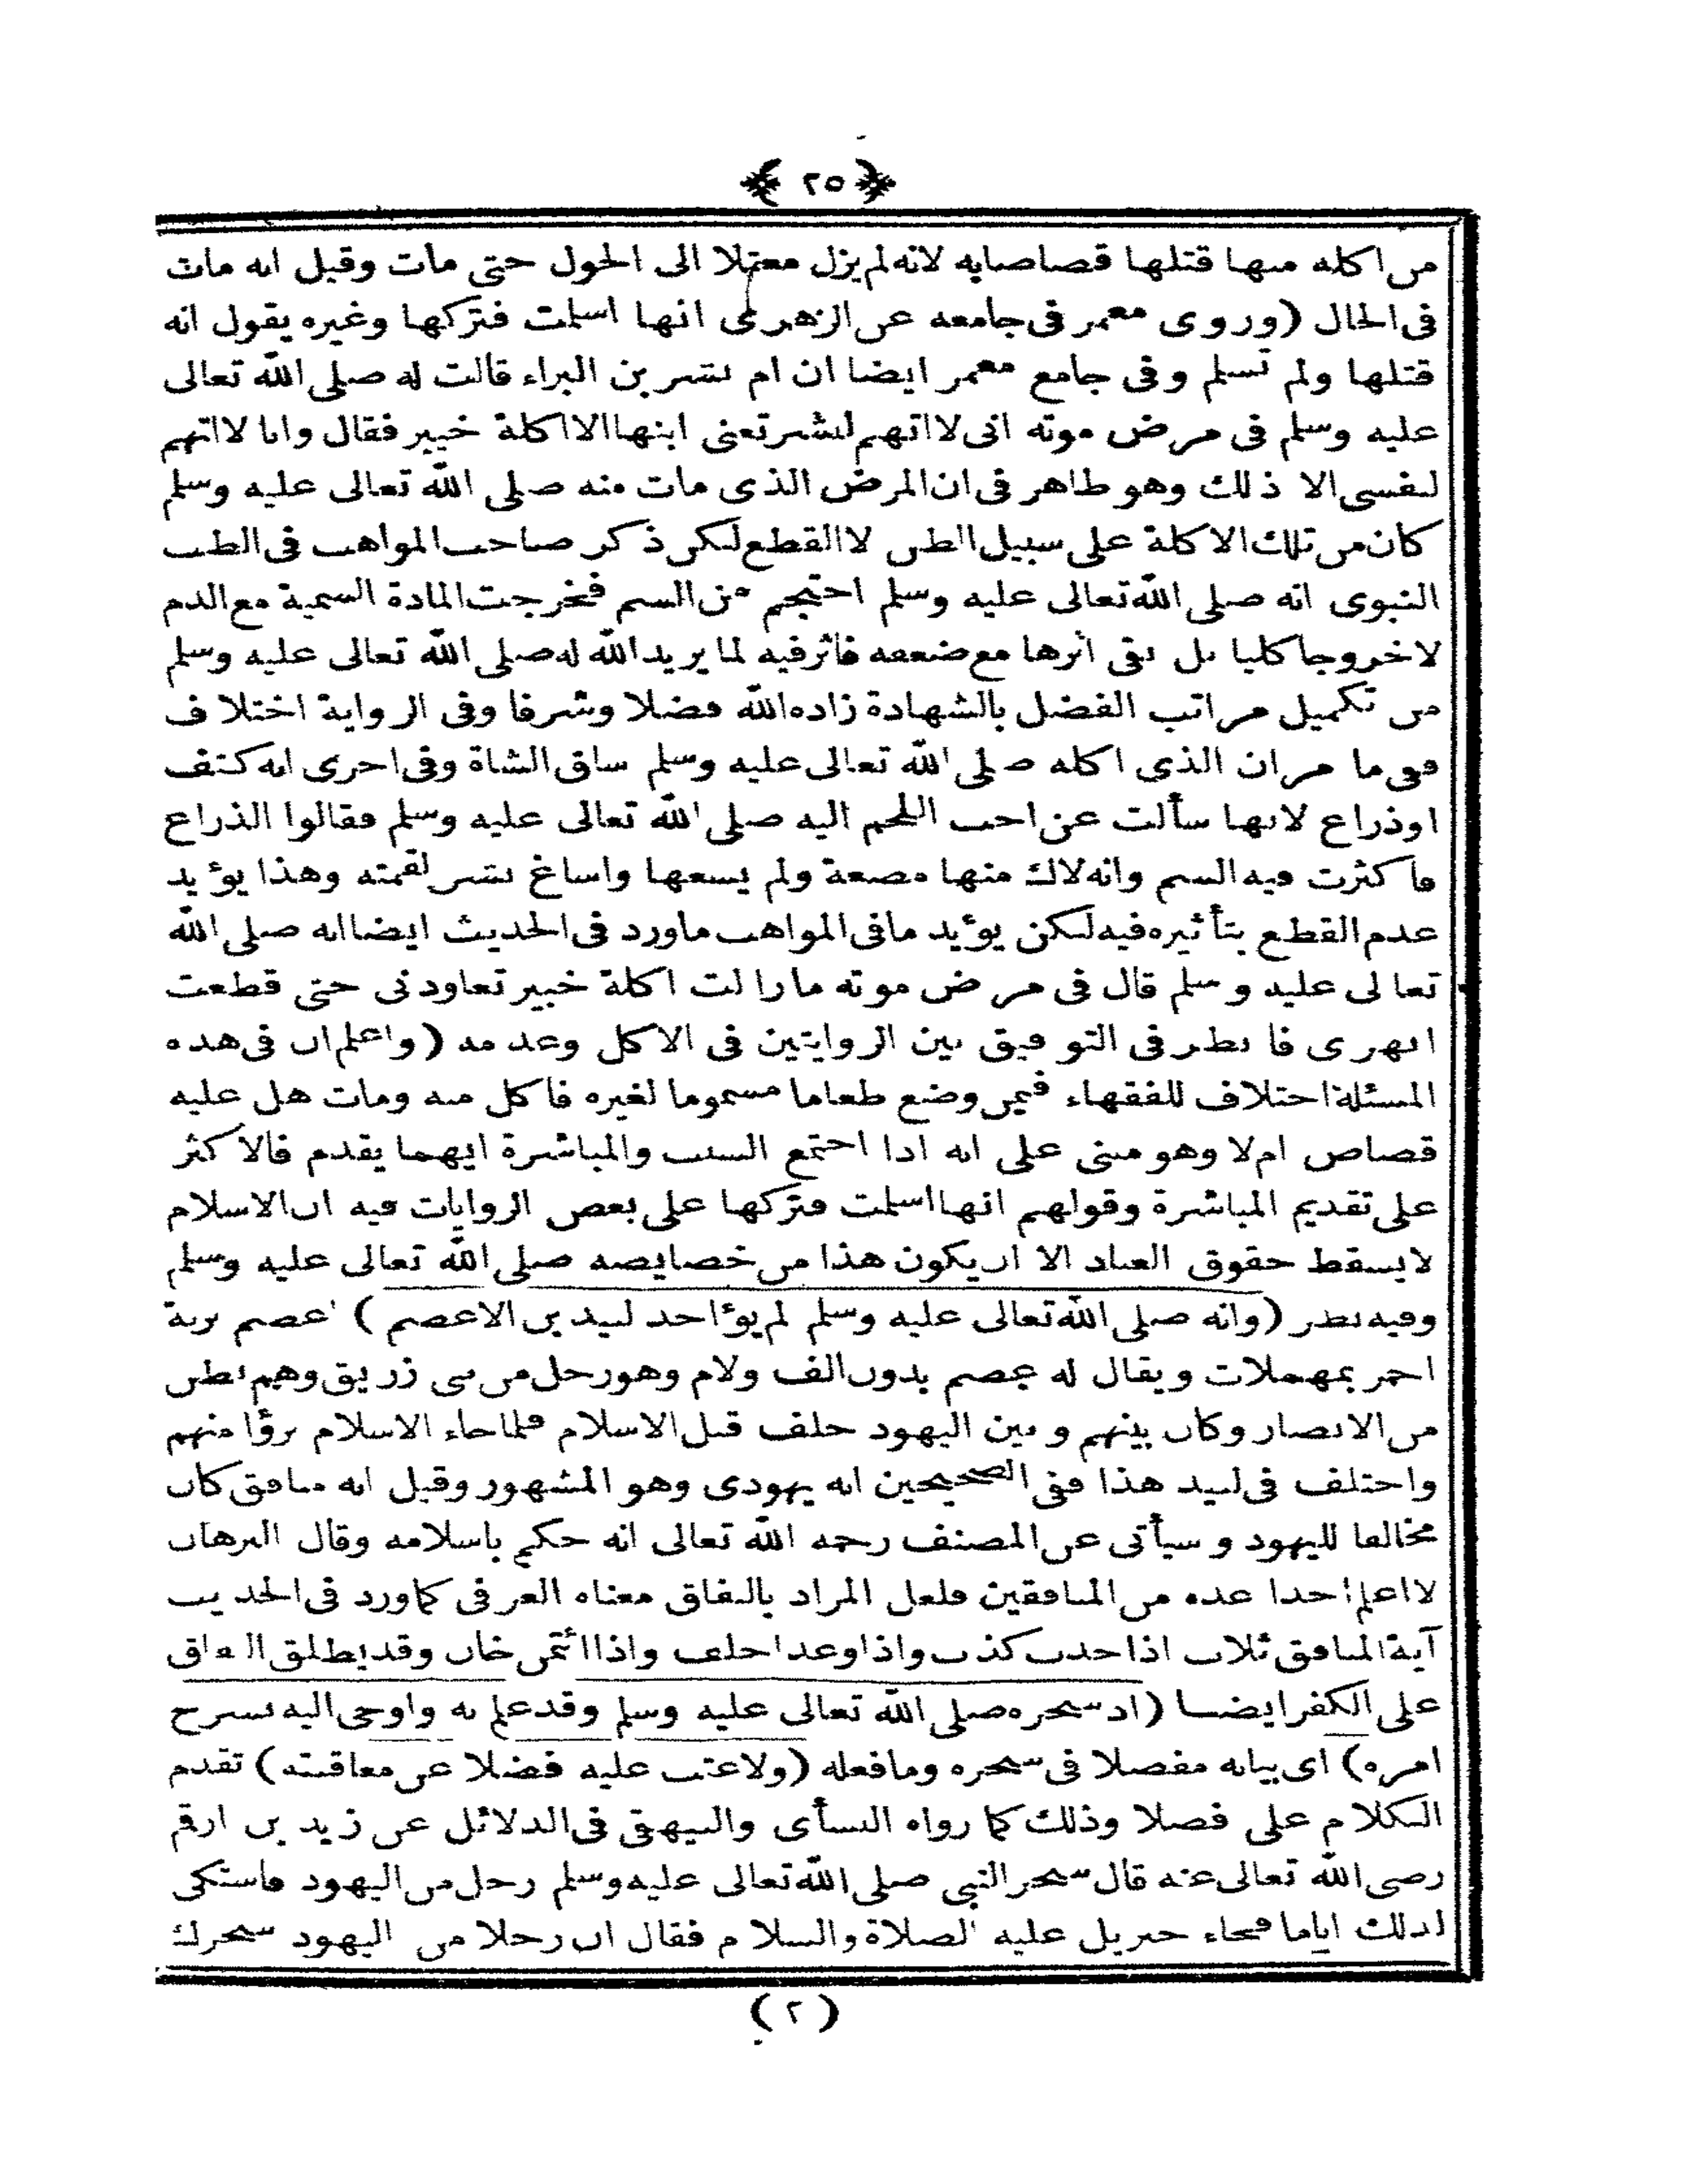 ﴿ ٢٥ ﴾
من اكله منها قتلها قصاصا به لانه لم يزل معتلا الى الحول حتى مات وقيل انه مات
فى الحال (وروى معمر فى جامعه عن الزهرى انها اسلمت فتركها وغيره يقول انه
قتلها ولم تسلم وفى جامع معمر ايضا ان ام بشر بن البراء قالت له صلى الله تعالى
عليه وسلم فى مرض موته انى لا اتهم لبشر تعنى ابنها الا اكلة خيبر فقال وانا لا اتهم
لنفسى الا ذلك وهو ظاهر فى ان المرض الذى مات منه صلى الله تعالى عليه وسلم
كان من تلك الاكلة على سبيل الظن لا القطع لكن ذكر صاحب المواهب فى الطب
النبوى انه صلى الله تعالى عليه وسلم احتجم من السم فخرجت المادة السمية مع الدم
لا خروجا كليا بل بقى اثرها مع ضعفه فاثر فيه لما يريد الله له صلى الله تعالى عليه وسلم
من تكميل مراتب الفضل بالشهادة زاده الله فضلا وشرفا وفى الرواية اختلاف
ففى ما مر ان الذى اكله صلى الله تعالى عليه وسلم ساق الشاة وفى اخرى انه كتف
او ذراع لانها سألت عن احب اللحم اليه صلى الله تعالى عليه وسلم فقالوا الذراع
فاكثرت فيه السم وانه لاك منها مضغة ولم يسغها واساغ بشر لقمته وهذا يؤيد
عدم القطع بتأثيره فيه لكن يؤيد ما فى المواهب ما ورد فى الحديث ايضا انه صلى الله
تعالى عليه وسلم قال فى مرض موته ما زالت اكلة خيبر تعاودنى حتى قطعت
ابهرى فانظر فى التوفيق بين الروايتين فى الاكل وعدمه (واعلم ان فى هذه
المسئلة اختلاف للفقهاء فيمن وضع طعاما مسموما لغيره فاكل منه ومات هل عليه
قصاص ام لا وهو مبنى على انه اذا اجتمع السبب والمباشرة ايهما يقدم فالاكثر
على تقديم المباشرة وقولهم انها اسلمت فتركها على بعض الروايات فيه ان الاسلام
لا يسقط حقوق العباد الا ان يكون هذا من خصايصه صلى الله تعالى عليه وسلم
وفيه نظر (وانه صلى الله تعالى عليه وسلم لم يؤاخذ لبيد بن الاعصم) اعصم بزنة
احمر بمهملات ويقال له عصم بدون الف ولام وهو رجل من بنى زريق وهم بطن
من الانصار وكان بينهم وبين اليهود حلف قبل الاسلام فلما جاء الاسلام برؤا منهم
واختلف فى لبيد هذا ففى الصحيحين انه يهودى وهو المشهور وقيل انه منافق كان
مخالفا لليهود وسيأتى عن المصنف رحمه الله تعالى انه حكم باسلامه وقال البرهان
لا اعلم احدا عده من المنافقين فلعل المراد بالنفاق معناه العرفى كما ورد فى الحديث
آية المنافق ثلاث اذا حدث كذب واذا وعد اخلف واذا ائتمن خان وقد يطلق النفاق
على الكفر ايضا (اذ سحره صلى الله تعالى عليه وسلم وقد علم به واوحى اليه بشرح
امره) اى بيانه مفصلا فى سحره وما فعله (ولا عتب عليه فضلا عن معاقبته) تقدم
الكلام على فضلا وذلك كما رواه النسأى والبيهقى فى الدلائل عن زيد بن ارقم
رضى الله تعالى عنه قال سحر النبى صلى الله تعالى عليه وسلم رجل من اليهود فاشتكى
لذلك اياما فجاء جبريل عليه الصلاة والسلام فقال ان رجلا من اليهود سحرك
(٢)